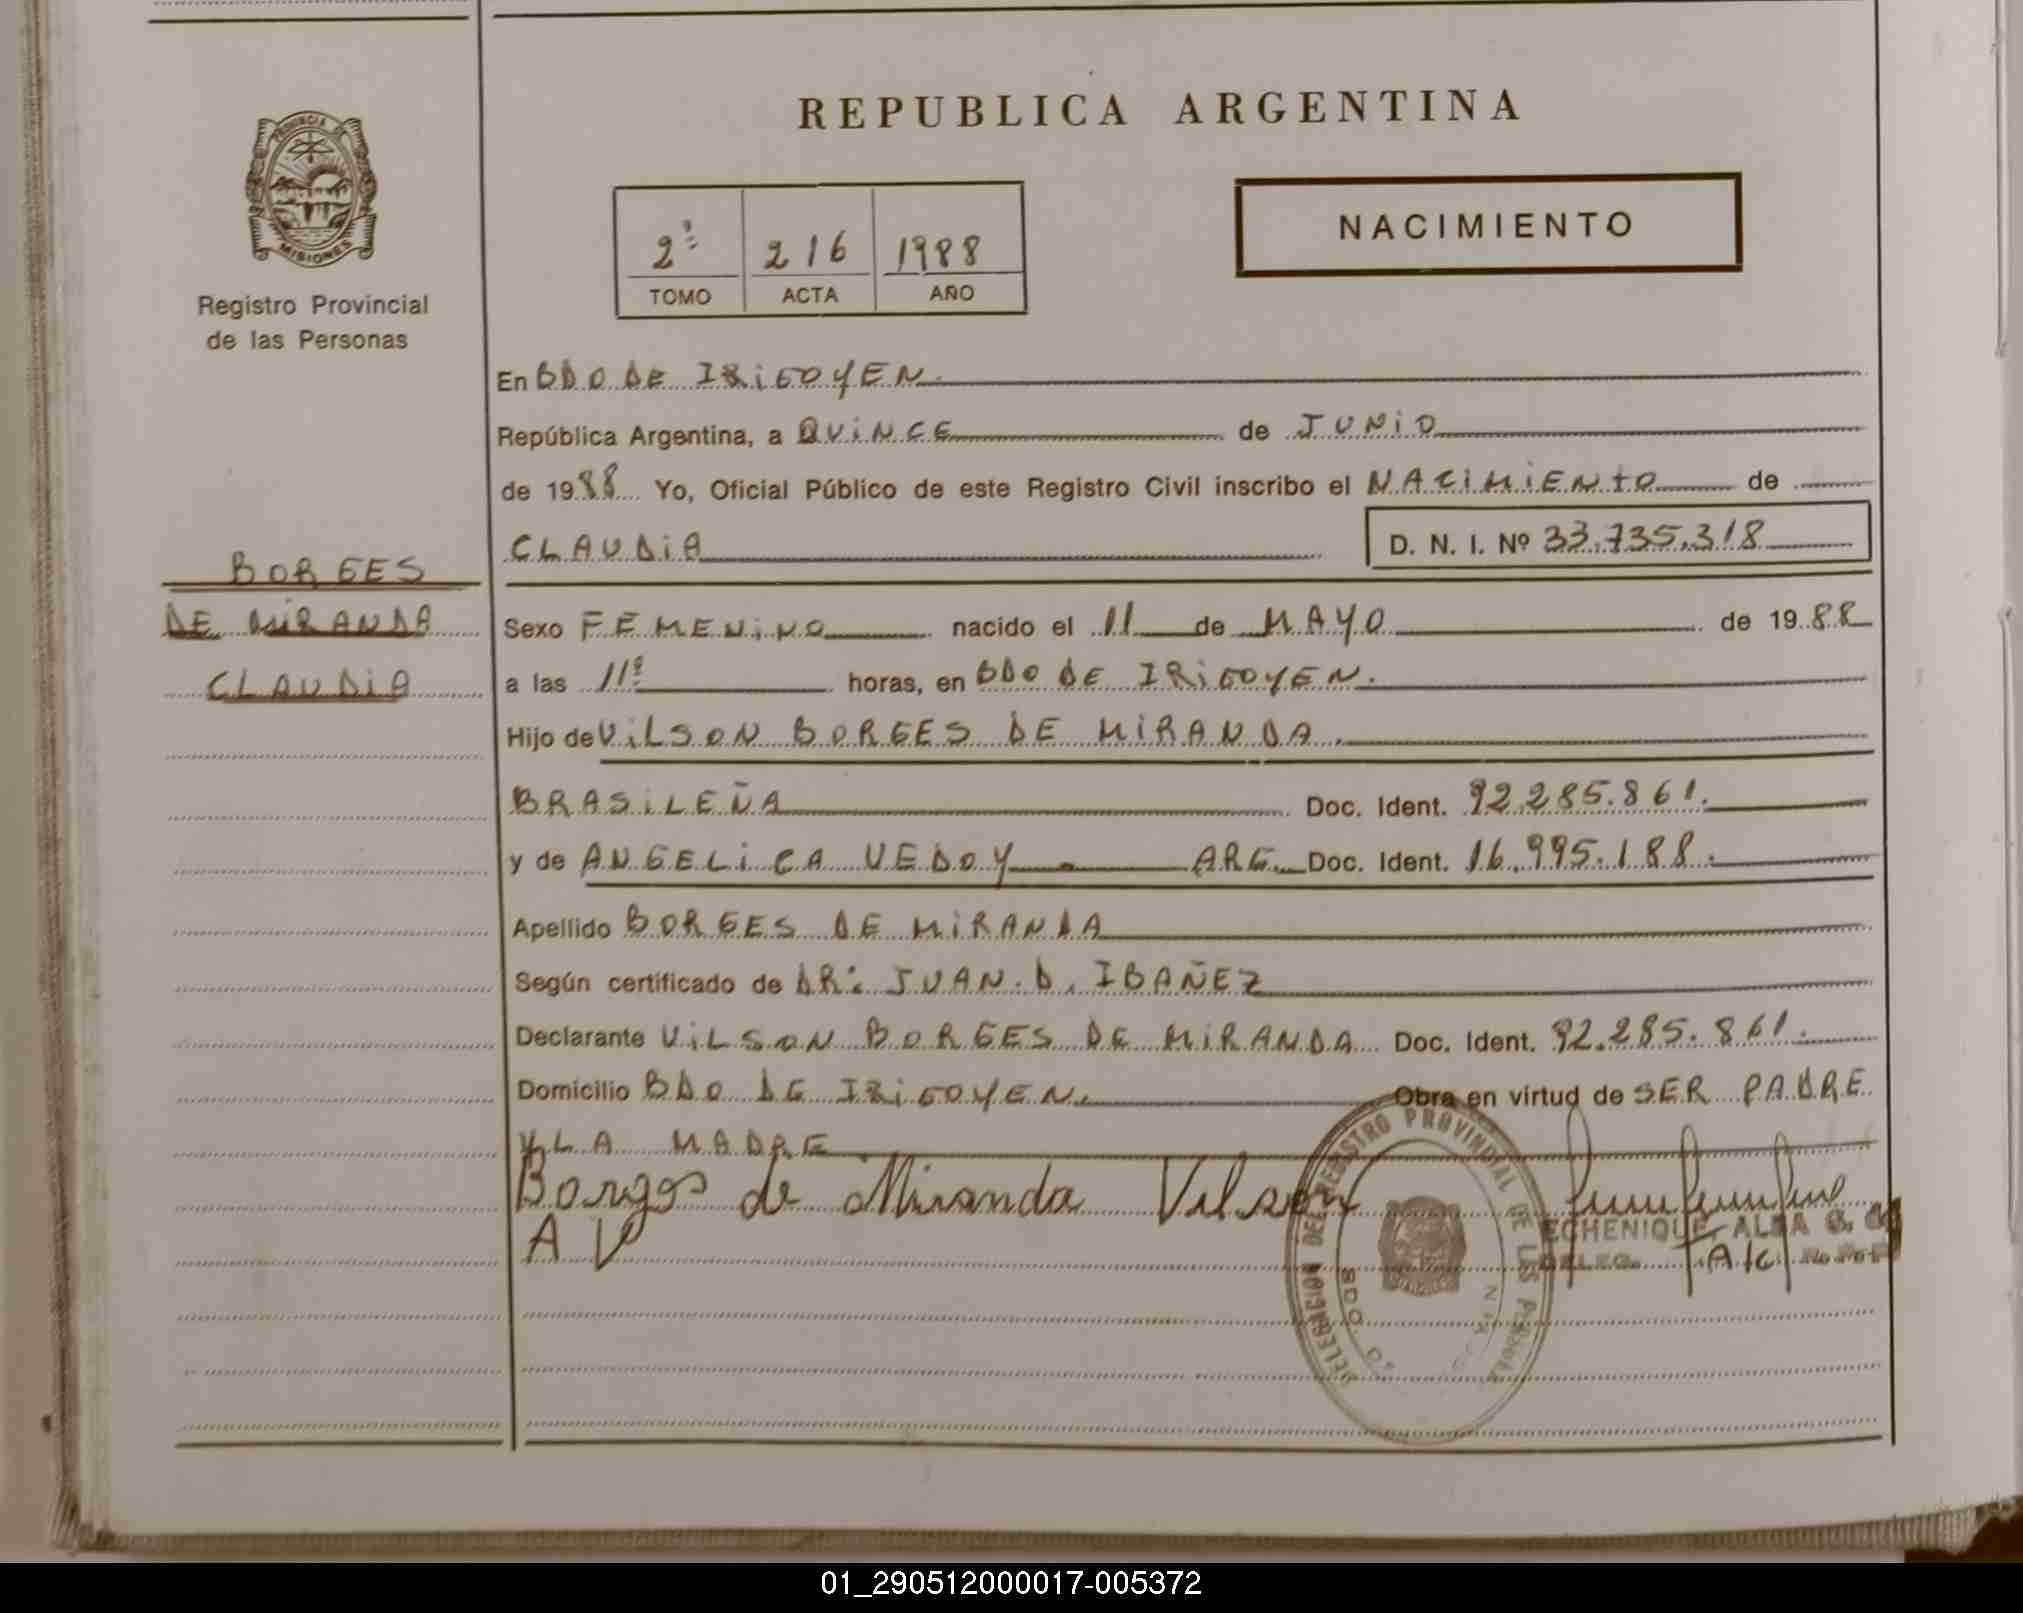 REPUBLICA ARGENTINA
PROVINCIA DE
MISIONES
Registro Provincial
de las Personas
NACIMIENTO
2º 216 1988
TOMO ACTA AÑO
En BDO DE IRIGOYEN.
República Argentina, a QUINCE de JUNIO
de 1988 Yo, Oficial Público de este Registro Civil inscribo el NACIMIENTO de
CLAUDIA D. N. I. Nº 33.735.318
BORGES
DE MIRANDA
CLAUDIA
Sexo FEMENINO nacido el 11 de MAYO de 1988
a las 11º horas, en BDO DE IRIGOYEN.
Hijo de VILSON BORGES DE MIRANDA.
BRASILEÑA Doc. Ident. 92.285.861.
y de ANGELICA VEDOY - ARG. Doc. Ident. 16.995.188.
Apellido BORGES DE MIRANDA
Según certificado de DR: JUAN. D. IBAÑEZ
Declarante VILSON BORGES DE MIRANDA Doc. Ident. 92.285.861.
Domicilio BDO DE IRIGOYEN. Obra en virtud de SER PADRE
Y LA MADRE.
Borges de Miranda Vilson
A V
DELEGACION DEL REGISTRO PROVINCIAL DE LAS PERSONAS
BDO.
ECHENIQUE, ALBA G.
DELEG.
01_290512000017-005372